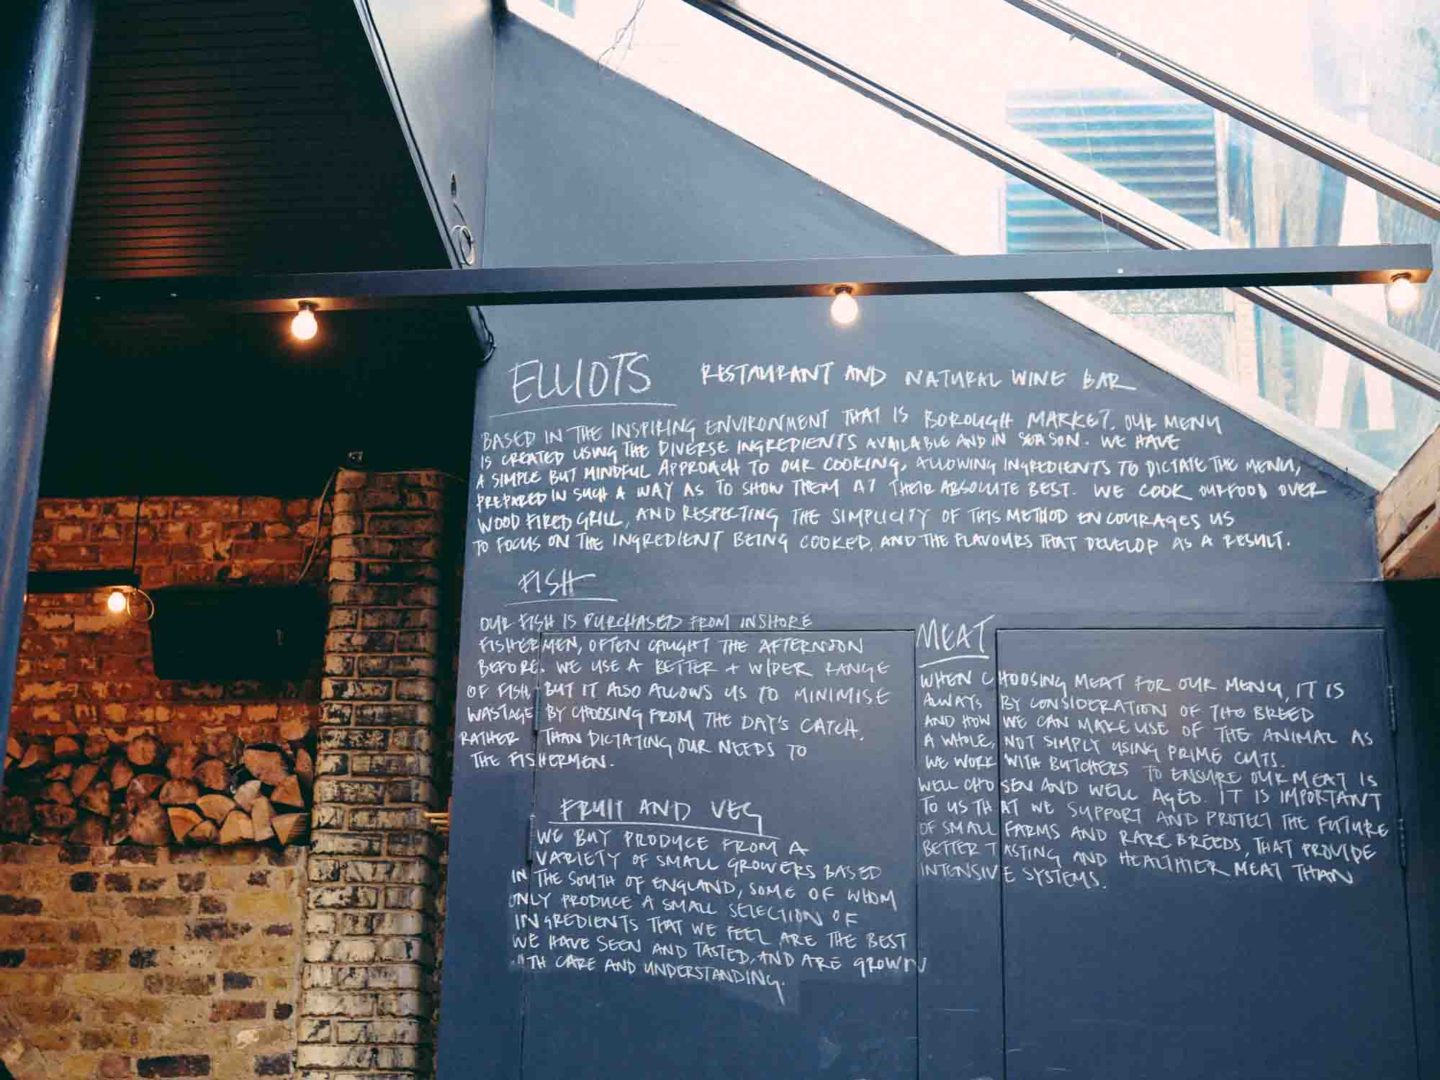 ELLIOTS RESTAURANT AND NATURAL WINE BAR
BASED IN THE INSPIRING ENVIRONMENT THAT IS BOROUGH MARKET. OUR MENU
IS CREATED USING THE DIVERSE INGREDIENTS AVAILABLE AND IN SEASON. WE HAVE
A SIMPLE BUT MINDFUL APPROACH TO OUR COOKING, ALLOWING INGREDIENTS TO DICTATE THE MENU,
PREPARED IN SUCH A WAY AS TO SHOW THEM AT THEIR ABSOLUTE BEST. WE COOK OUR FOOD OVER
WOOD FIRED GRILL, AND RESPECTING THE SIMPLICITY OF THIS METHOD ENCOURAGES US
TO FOCUS ON THE INGREDIENT BEING COOKED, AND THE FLAVOURS THAT DEVELOP AS A RESULT.
FISH
OUR FISH IS PURCHASED FROM INSHORE
FISHERMEN, OFTEN CAUGHT THE AFTERNOON
BEFORE. WE USE A BETTER + WIDER RANGE
OF FISH, BUT IT ALSO ALLOWS US TO MINIMISE
WASTAGE BY CHOOSING FROM THE DAY'S CATCH,
RATHER THAN DICTATING OUR NEEDS TO
THE FISHERMEN.
FRUIT AND VEG
WE BUY PRODUCE FROM A
VARIETY OF SMALL GROWERS BASED
IN THE SOUTH OF ENGLAND, SOME OF WHOM
ONLY PRODUCE A SMALL SELECTION OF
INGREDIENTS THAT WE FEEL ARE THE BEST
WE HAVE SEEN AND TASTED, AND ARE GROWN
ITH CARE AND UNDERSTANDING.
MEAT
WHEN CHOOSING MEAT FOR OUR MENU, IT IS
ALWAYS BY CONSIDERATION OF THE BREED
AND HOW WE CAN MAKE USE OF THE ANIMAL AS
A WHOLE, NOT SIMPLY USING PRIME CUTS.
WE WORK WITH BUTCHERS TO ENSURE OUR MEAT IS
WELL CHOSEN AND WELL AGED. IT IS IMPORTANT
TO US THAT WE SUPPORT AND PROTECT THE FUTURE
OF SMALL FARMS AND RARE BREEDS, THAT PROVIDE
BETTER TASTING AND HEALTHIER MEAT THAN
INTENSIVE SYSTEMS.